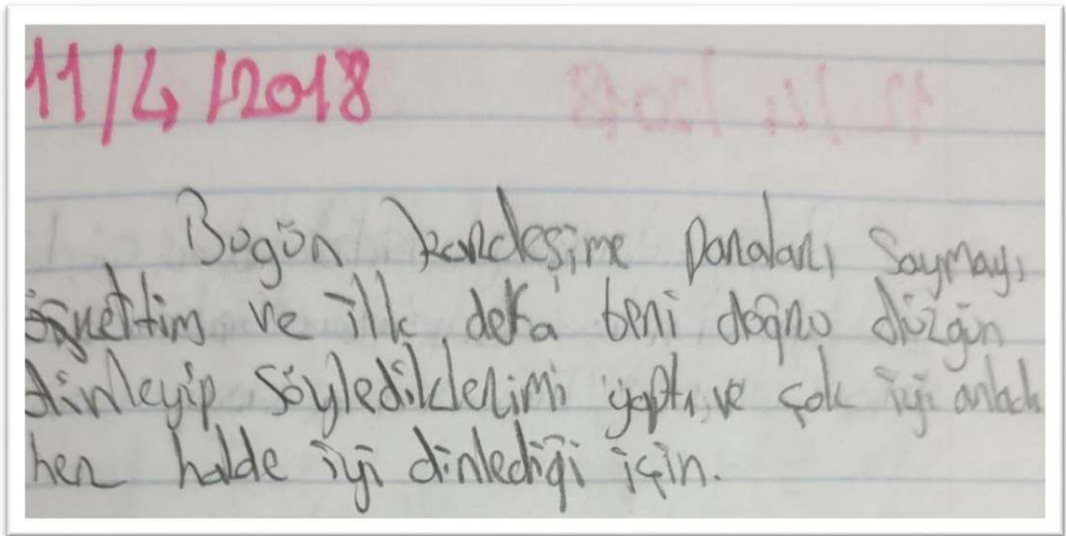 11/4/2018
Bugün kardeşime paraları saymayı
öğrettim ve ilk defa beni doğru düzgün
dinleyip söylediklerimi yaptı ve çok iyi anladı
her halde iyi dinlediği için.